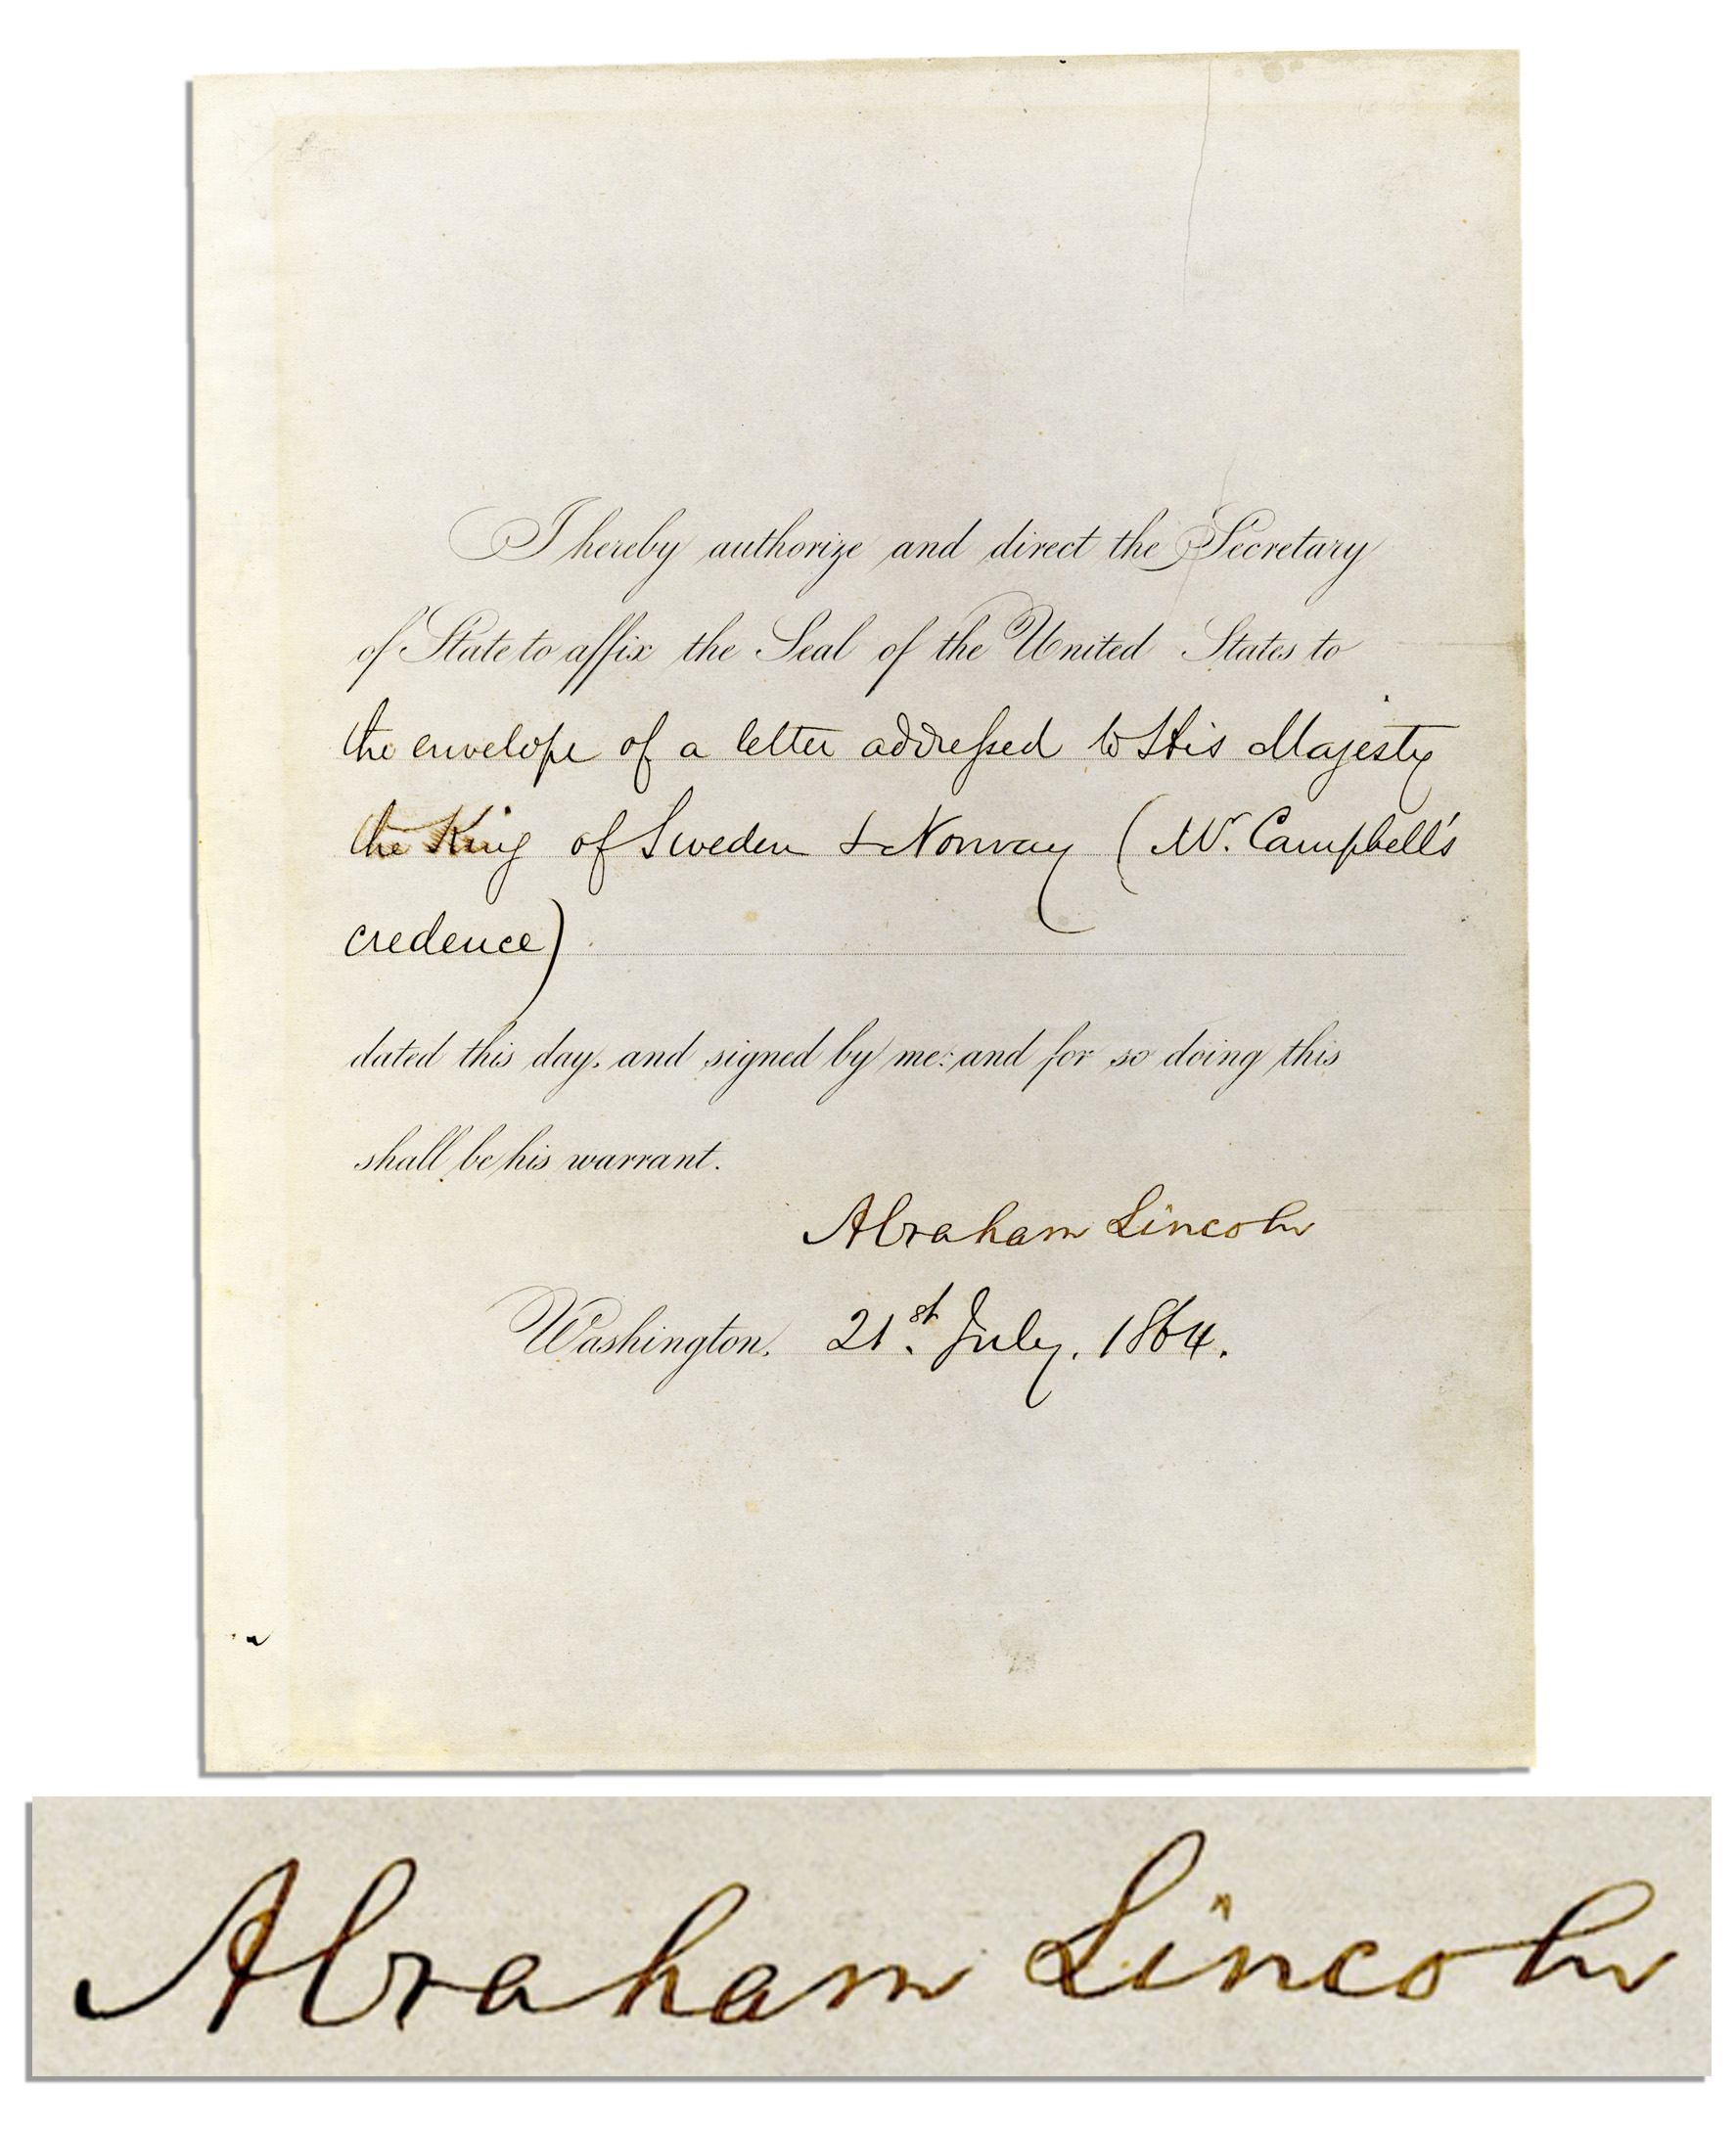 I hereby authorize and direct the Secretary
of State to affix the Seal of the United States to
the envelope of a letter addressed to His Majesty
the King of Sweden & Norway (Mr. Campbell's
credence)
dated this day, and signed by me: and for so doing this
shall be his warrant.
Abraham Lincoln
Washington, 21st. July, 1864.
Abraham Lincoln